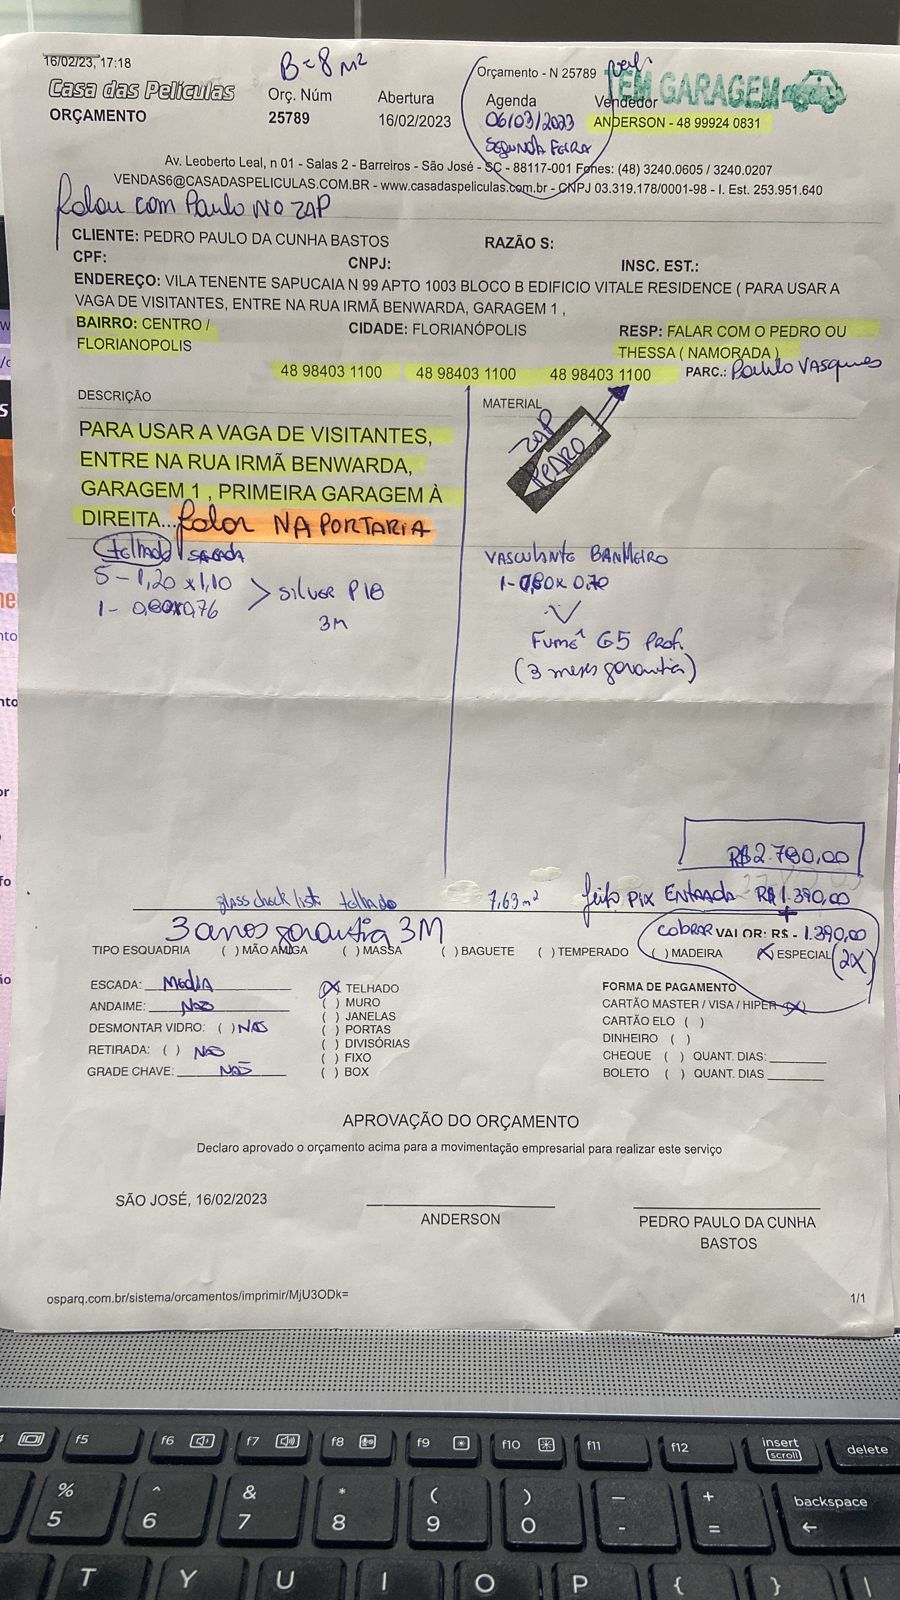 16/02/23, 17:18
B= 8 m²
Orçamento - N 25789
TEM GARAGEM
Casa das Películas
ORÇAMENTO
Orç. Núm
25789
Abertura
16/02/2023
Agenda
06/03/2023
SEGUNDA FEIRA
Vendedor
ANDERSON - 48 99924 0831
Av. Leoberto Leal, n 01 - Salas 2 - Barreiros - São José - SC - 88117-001 Fones: (48) 3240.0605 / 3240.0207
VENDAS6@CASADASPELICULAS.COM.BR - www.casadaspeliculas.com.br - CNPJ 03.319.178/0001-98 - I. Est. 253.951.640
falou com Paulo NO ZAP
CLIENTE: PEDRO PAULO DA CUNHA BASTOS
RAZÃO S:
CPF:
CNPJ:
INSC. EST.:
ENDEREÇO: VILA TENENTE SAPUCAIA N 99 APTO 1003 BLOCO B EDIFICIO VITALE RESIDENCE ( PARA USAR A
VAGA DE VISITANTES, ENTRE NA RUA IRMÃ BENWARDA, GARAGEM 1 ,
BAIRRO: CENTRO /
FLORIANOPOLIS
CIDADE: FLORIANÓPOLIS
RESP: FALAR COM O PEDRO OU
THESSA ( NAMORADA )
48 98403 1100 48 98403 1100 48 98403 1100
PARC.: Paulo VASques
DESCRIÇÃO
MATERIAL
ZAP
PEDRO
PARA USAR A VAGA DE VISITANTES,
ENTRE NA RUA IRMÃ BENWARDA,
GARAGEM 1 , PRIMEIRA GARAGEM À
DIREITA... falar NA PORTARIA
telhado SACADA
5 - 1,20 x 1,10
1 - 0,80x0,76
SILVER P18
3M
VASCULANTE BANHEIRO
1- 0,80x 0,70
Fumê G5 Prof.
(3 meses garantia)
R$2.780,00
glass check list telhado 7,63 m² feito PIX ENTRADA R$1.390,00
+
3 anos garantia 3M
COBRAR VALOR: R$ - 1.390,00
TIPO ESQUADRIA ( ) MÃO AMIGA ( ) MASSA ( ) BAGUETE ( ) TEMPERADO ( ) MADEIRA (X) ESPECIAL (2X)
ESCADA: MEDIA
ANDAIME: NÃO
DESMONTAR VIDRO: ( ) NÃO
RETIRADA: ( ) NÃO
GRADE CHAVE: NÃO
(X) TELHADO
( ) MURO
( ) JANELAS
( ) PORTAS
( ) DIVISÓRIAS
( ) FIXO
( ) BOX
FORMA DE PAGAMENTO
CARTÃO MASTER / VISA / HIPER (X)
CARTÃO ELO ( )
DINHEIRO ( )
CHEQUE ( ) QUANT. DIAS: ________
BOLETO ( ) QUANT. DIAS ________
APROVAÇÃO DO ORÇAMENTO
Declaro aprovado o orçamento acima para a movimentação empresarial para realizar este serviço
SÃO JOSÉ, 16/02/2023
ANDERSON
PEDRO PAULO DA CUNHA
BASTOS
osparq.com.br/sistema/orcamentos/imprimir/MjU3ODk=
1/1
f5 f6 f7 f8 f9 f10 f11 f12 insert delete
scroll
% ^ & * ( ) — + backspace
5 6 7 8 9 0 - = ←
T Y U I O P { } |